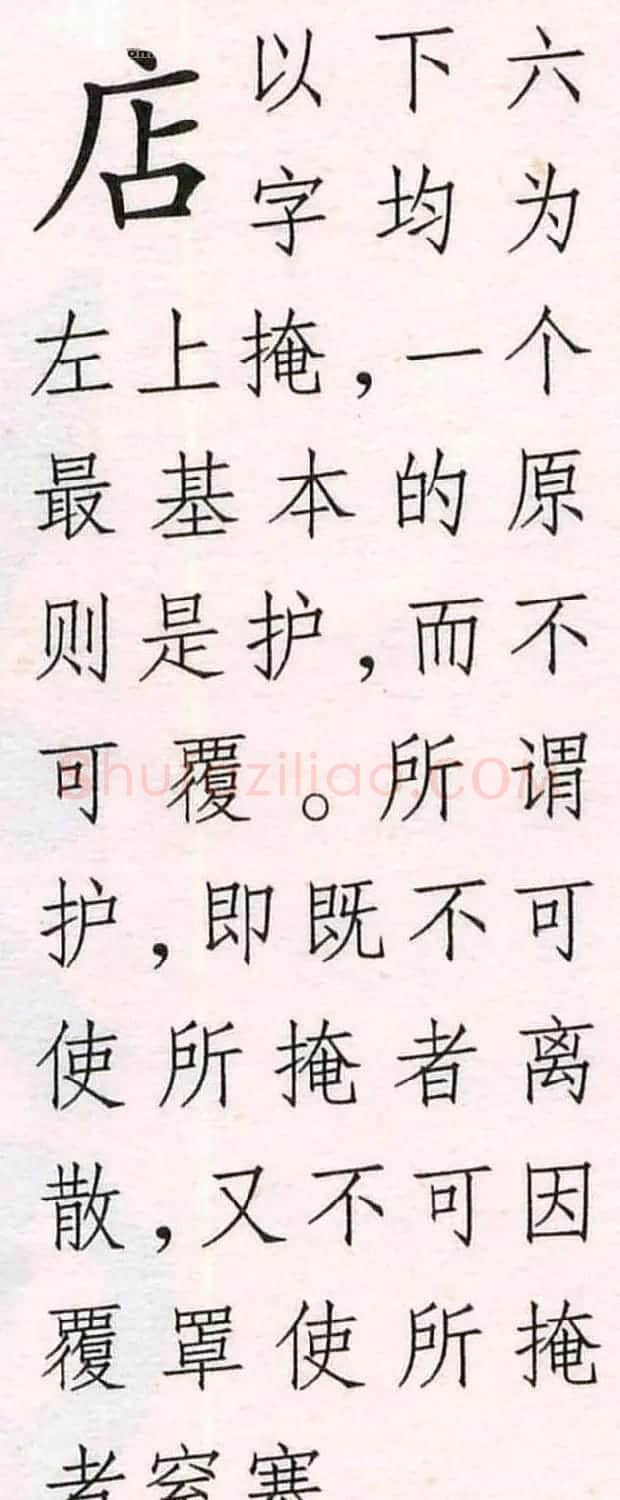 店
以下六
字均为
左上掩，一个
最基本的原
则是护，而不
可覆。所谓
护，即既不可
使所掩者离
散，又不可因
覆罩使所掩
者窒塞